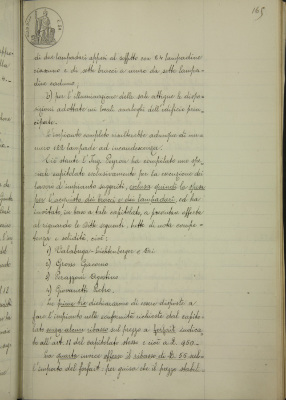 165
di due lampadari appesi al soffitto con 24 lampadine
ciascuno e di sette bracci a muro da sette lampa-
dine caduno.
b) per l'illuminazione delle sale attigue le dispo-
sizioni adottate nei locali analoghi dell'edificio prin-
cipale.
L'impianto completo risulterebbe adunque di nu-
mero lampade ad incandescenza.
Ciò stante l'Ing. ha compilato uno spe-
ciale capitolato esclusivamente per la esecuzione di
lavori di impianto suggeriti, esclusa quindi la spesa
per l'acquisto dei bracci e dei lampadari, ed ha
invitato, in base a tale capitolato, a presentare offerta
al riguardo le Ditte seguenti, tutte di nota compe-
tenza e solidità, cioè:
1)
2) Giacomo
3) Agostino
4) Pietro.
Le prime tre dichiararono di essere disposte a
fare l'impianto nella conformità indicata dal capito-
lato senza alcun ribasso sul prezzo a forfait indica-
to all'art. 11 del capitolato stesso e cioè a L. 950.-
La quarta invece offerse il ribasso di L. 55 sul-
l'importo del forfait, per guisa che il prezzo stabil-